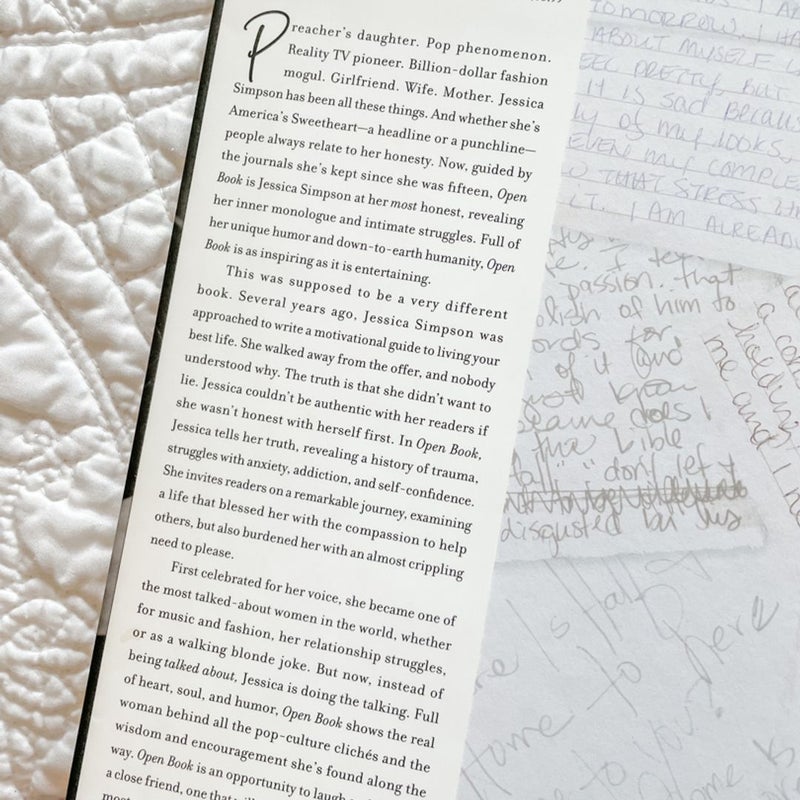 Preacher's daughter. Pop phenomenon.
Reality TV pioneer. Billion-dollar fashion
mogul. Girlfriend. Wife. Mother. Jessica
Simpson has been all these things. And whether she's
America's Sweetheart—a headline or a punchline—
people always relate to her honesty. Now, guided by
the journals she's kept since she was fifteen, Open
Book is Jessica Simpson at her most honest, revealing
her inner monologue and intimate struggles. Full of
her unique humor and down-to-earth humanity, Open
Book is as inspiring as it is entertaining.
This was supposed to be a very different
book. Several years ago, Jessica Simpson was
approached to write a motivational guide to living your
best life. She walked away from the offer, and nobody
understood why. The truth is that she didn't want to
lie. Jessica couldn't be authentic with her readers if
she wasn't honest with herself first. In Open Book,
Jessica tells her truth, revealing a history of trauma,
struggles with anxiety, addiction, and self-confidence.
She invites readers on a remarkable journey, examining
a life that blessed her with the compassion to help
others, but also burdened her with an almost crippling
need to please.
First celebrated for her voice, she became one of
the most talked-about women in the world, whether
for music and fashion, her relationship struggles,
or as a walking blonde joke. But now, instead of
being talked about, Jessica is doing the talking. Full
of heart, soul, and humor, Open Book shows the real
woman behind all the pop-culture clichés and the
wisdom and encouragement she's found along the
way. Open Book is an opportunity to laugh
a close friend, one that
TOMORROW. I
ABOUT MYSELF
FEEL PRETTY, BUT
IT IS SAD BECAUSE
OF MY LOOKS,
EVEN MY COMPLE
THAT STRESS
IT. I AM ALREADY
I
passion. that
of him to
for
of it
know
does I
the bible
fall" "don't let
disgusted by his
Is
to here
Home to
to You?
Home
a
holding
me and I